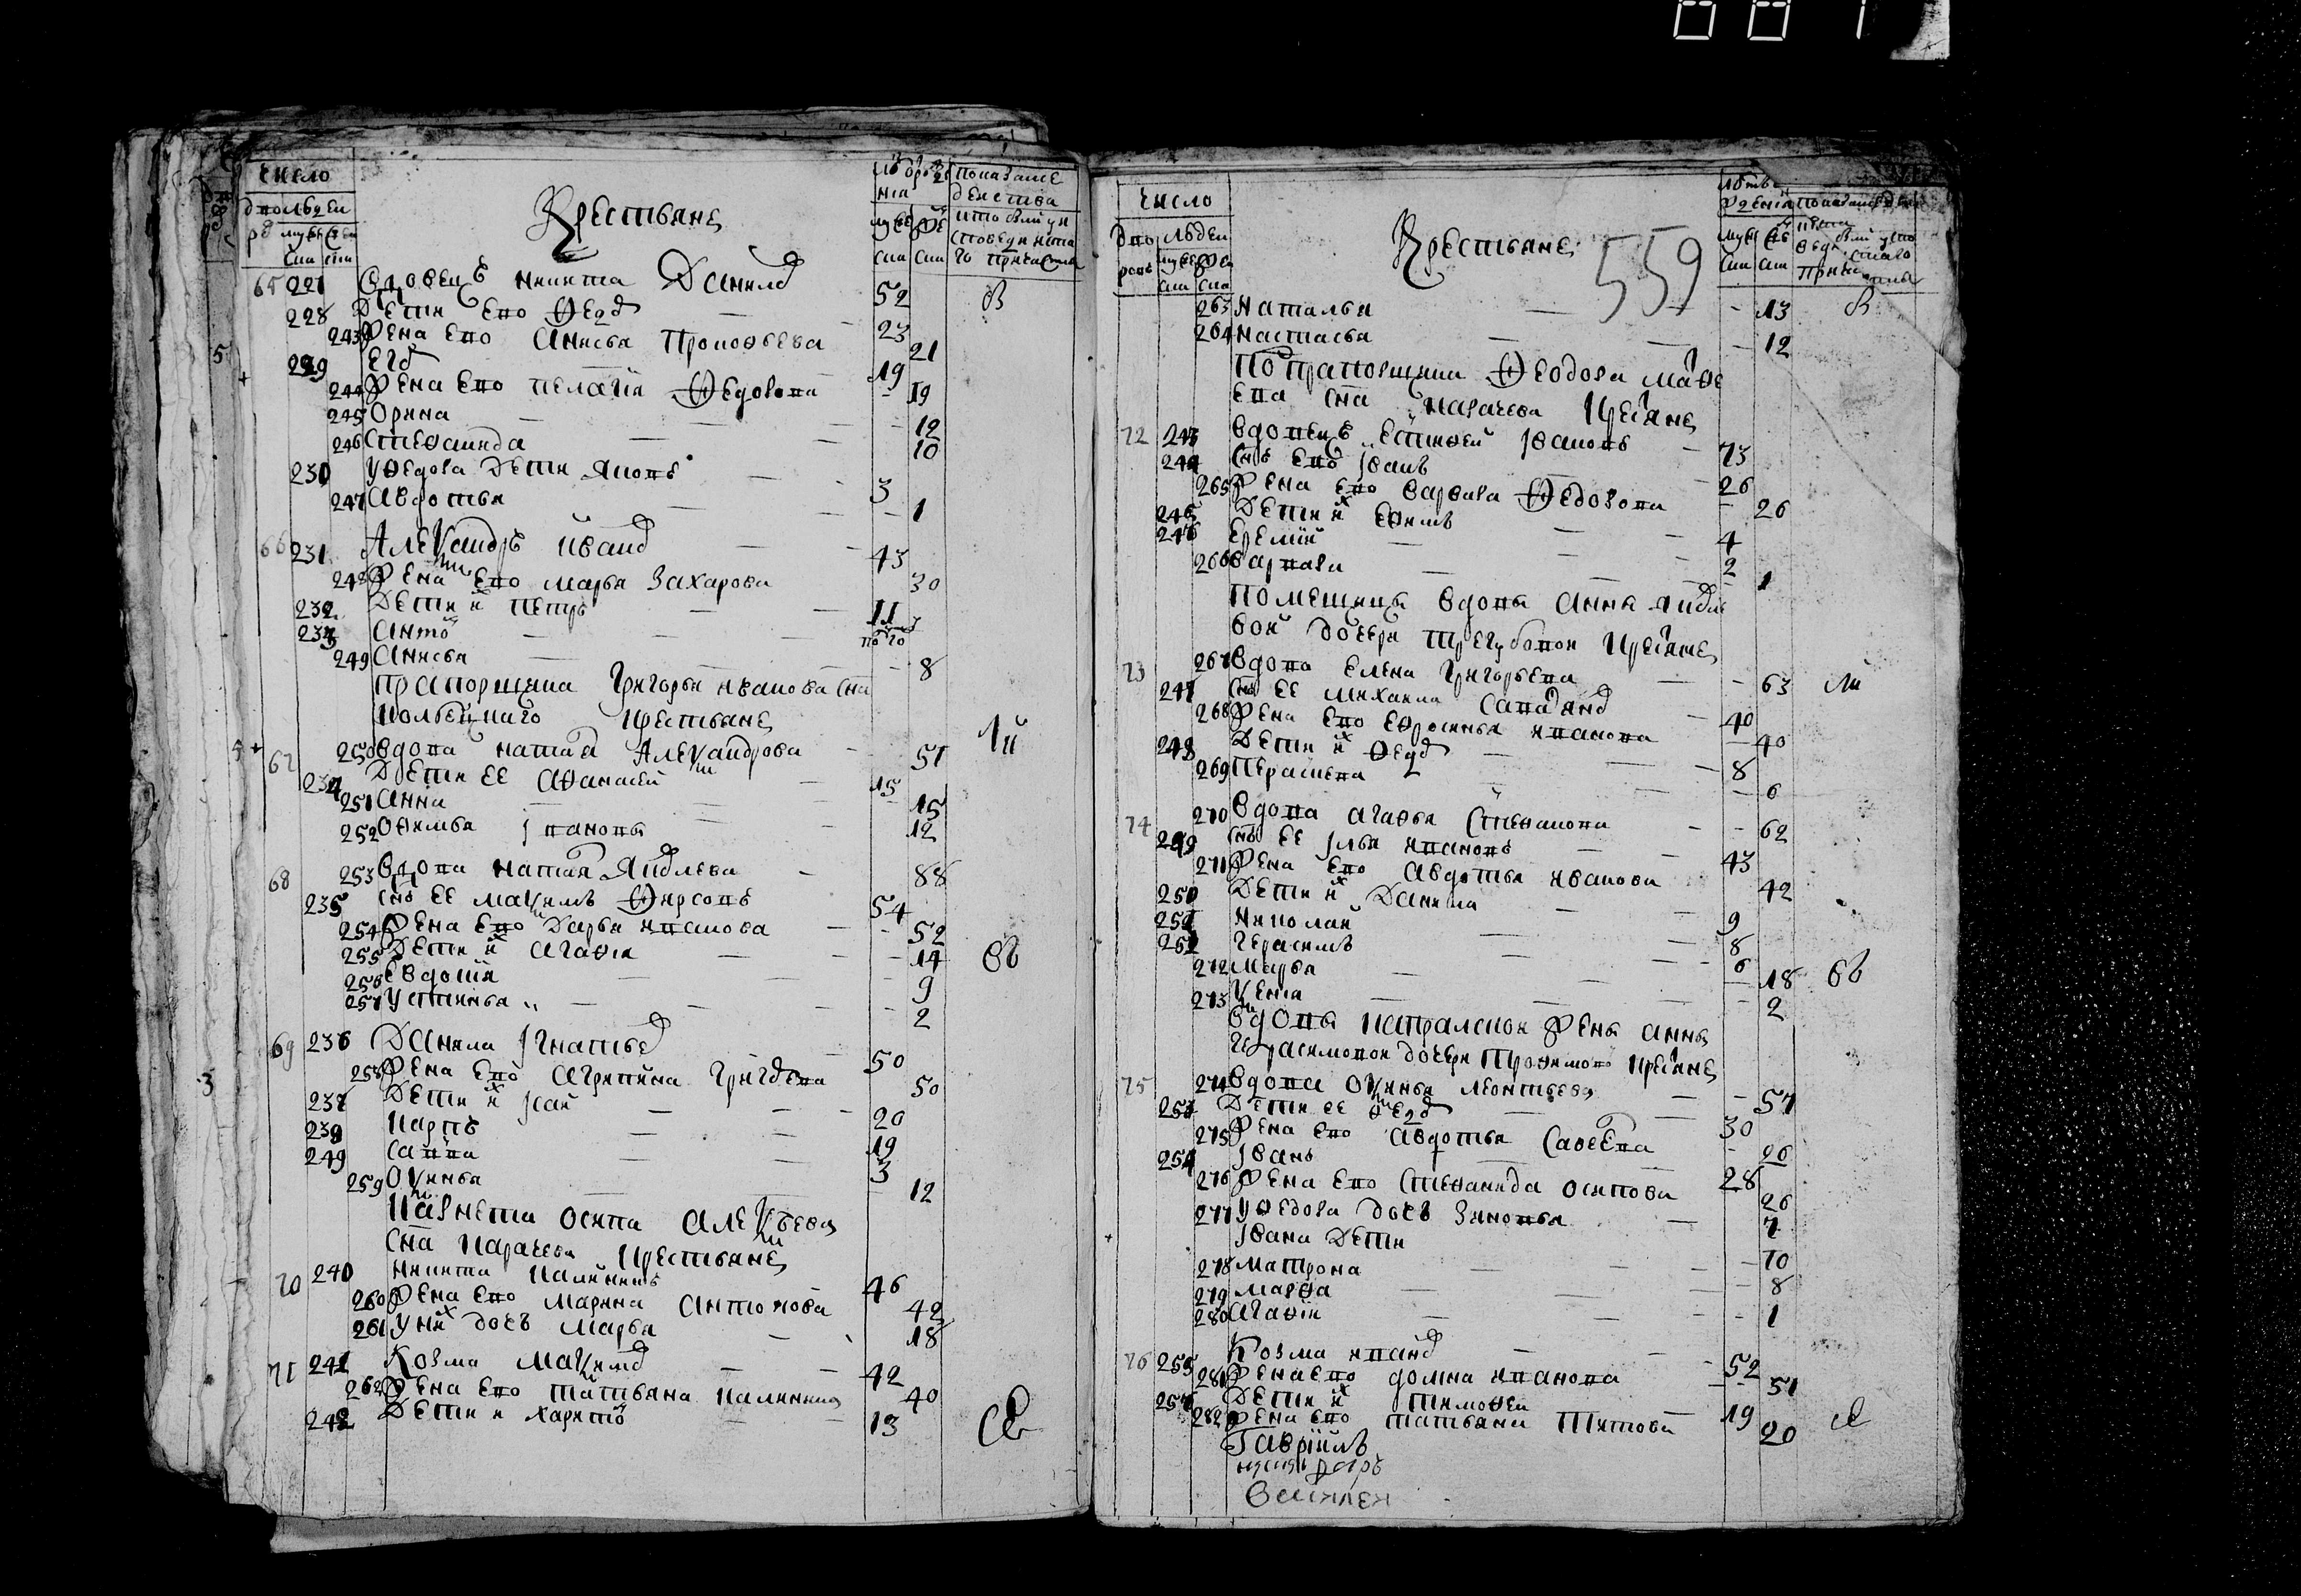 число
дворовъ людей
муж жен
Крестьяне
65 227 Вдовецъ никита Данилов 52
228 Дети ево Федор 23
243 Жена ево Анисья Прокофьева 21
229 Егор 19
244 Жена ево пелагия Федорова 19
245 Орина 12
246 Степанида 10
230 У федора Дети Яковъ 3
247 Авдотья 1
66 231 Александръ иванов 43
248 Жена ево марья Захарова 30
232 Дети их петръ 11
233 Антон
249 Анисья 8
прапорщика Григорья иванова сна
крестьяне
67 250 вдова наталья Александрова 51
234 Дети ее Афанасей 15
251 Анна 15
252 Офимья 12
68 253 Вдова наталья Яковлева 88
235 снъ ее максимъ Фирсовъ 54
254 Жена ево Дарья иванова 52
255 Дети их Агафия 14
256 Евдокия 9
257 Устинья 2
69 236 Данила Игнатьев 50
258 Жена ево Агрипина Григорьева 50
237 Дети их Исай 20
239 Карпъ 19
249 Савва 3
259 Оксинья 12
осипа Алексеева
сна Карачева крестьяне
70 240 никита калининъ 46
260 Жена ево Марина Антонова 42
261 У них дочь Марья 18
71 241 Козма Максимов 42
262 Жена ево татьяна калинина 40
242 Дети их харитон 13
число
дво людей
Крестьяне 559
263 наталья 13
264 настасья 12
прапорщика Феодора матве
ева сна карачева крестьяне
72 243 вдовецъ евтифей Ивановъ 73
244 снъ ево Иванъ 26
265 Жена ево варвара Федорова 26
245 Дети их Ефимъ 4
246 Еремий 2
266 варвара 1
помещицы вдовы Анны яковле
вой дочери трегубовой крестьяне
73 267 вдова Елена Григорьева 63
247 снъ ее михаила 40
268 Жена ево Ефросинья иванова 40
248 Дети их Федор 8
269 Парасковья 6
74 270 вдова агафья Степанова 62
249 снъ ее Илья ивановъ 43
271 Жена ево Авдотья иванова 42
250 Дети их Данила 9
251 николай 8
252 Герасимъ 6
272 марья 18
273 Ксения 2
вдовы капралской Жены анны
Герасимовой дочери трофимово крестьяне
75 274 вдова Оксинья леонтьева 57
253 Дети ее Федор 30
275 Жена ево Авдотья Савельева 26
254 Иванъ 28
276 Жена ево Степанида осипова 26
277 У федора дочь Зиновья 7
Ивана Дети
278 Матрона 10
279 марфа 8
280 Агафия 1
76 255 Козма иванов 52
281 Жена ево домна иванова 51
256 Дети их тимофей 19
282 Жена ево татьяна Титова 20
Гавриилъ